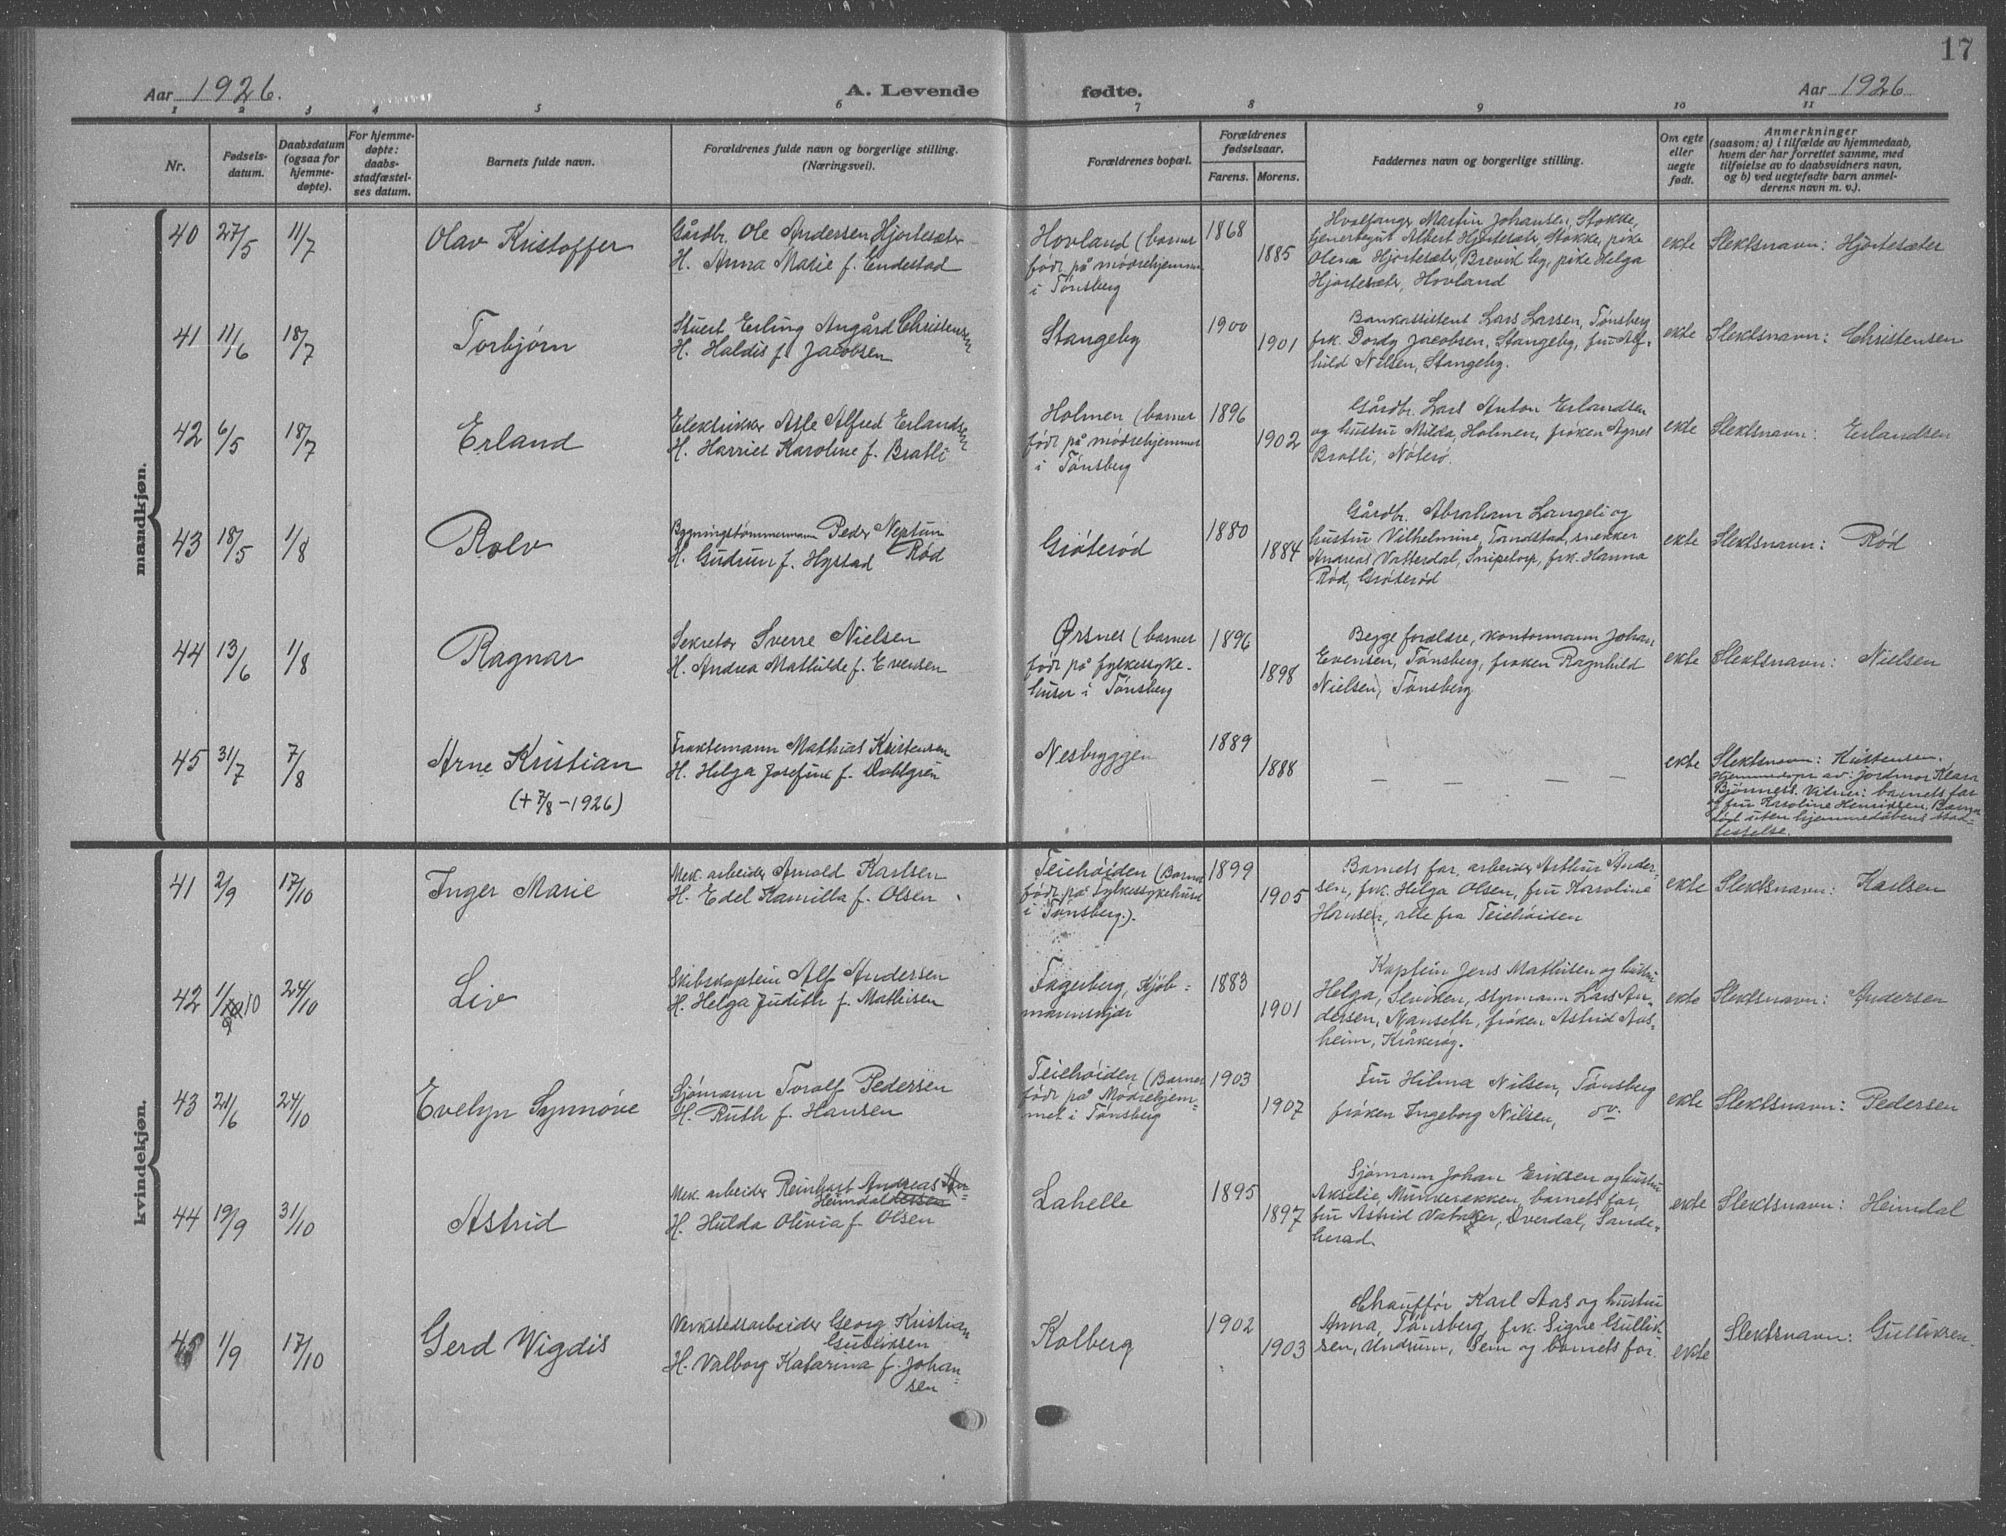 17
Aar 1926.
A. Levende fødte.
Aar 1926
1 2 3 4 5 6 7 8 9 10 11
Nr.
Fødsels-
datum.
Daabsdatum
(ogsaa for
hjemme-
døpte).
For hjemme-
døpte:
daabs-
stadfæstel-
ses datum.
Barnets fulde navn.
Forældrenes fulde navn og borgerlige stilling.
(Næringsvei).
Forældrenes bopæl.
Forældrenes
fødselsaar.
Farens. Morens.
Faddernes navn og borgerlige stilling.
Om egte
eller
uegte
født.
Anmerkninger
(saasom: a) i tilfælde av hjemmedaab,
hvem der har forrettet samme, med
tilføielse av to daabsvidners navn,
og b) ved uegtefødte barn anmel-
derens navn m. v.).
mandkjøn.
40 27/5 11/7 Olav Kristoffer
Gårdbr. Ole Andersen Hjortesæter
H. Anna Marie f. Endestad
Hovland (barnet
født på mødrehjemmet
i Tønsberg
1868 1885
Hvalfanger Martin Johansen, Stokke,
tjenestegut Albert Hjortesæter, Stokke, pike
Olena Hjortesæter, Brevik by, pike Helga
Hjortesæter, Hovland
ekte Slektsnavn: Hjortesæter
41 11/6 18/7 Torbjørn
Stuert Erling Angård Christensen
H. Haldis f. Jacobsen
Stangeby
1900 1901
Bankassistent Lars Larsen, Tønsberg
frk. Dordy Jacobsen, Stangeby, fru Alf-
hild Nilsen, Stangeby.
ekte Slektsnavn: Christensen
42 6/5 18/7 Erland
Elektrikker Asle Alfred Erlandsen
H. Harriet Karoline f. Bratli
Holmen (barnet
født på mødrehjemmet
i Tønsberg
1896 1902
Gårdbr. Lars Anton Erlandsen
og hustru Milda, Holmen, frøken Agnes
Bratli, Nøterø.
ekte Slektsnavn: Erlandsen
43 18/5 1/8 Rolv
Bygningstømmermann Peder Neptun
Rød
H. Gudrun f. Hystad
Grøterød
1880 1884
Gårdbr. Abraham Langeli og
hustru Vilhelmine, Tandstad, snekker
Andreas Vatterdal, Snipetorp, frk. Hanna
Rød, Grøterød
ekte Slektsnavn: Rød
44 13/6 1/8 Ragnar
Sekretær Sverre Nielsen
H. Andrea Mathilde f. Evensen
Ørsnes (barnet
født på fylkessyke-
huset i Tønsberg
1896 1898
Begge forældre, kontormann Johan
Evensen, Tønsberg, frøken Ragnhild
Nielsen, Tønsberg
ekte Slektsnavn: Nielsen
45 31/7 7/8 Arne Kristian
(+ 7/8 - 1926)
Fraktemann Mathias Kristensen
H. Helga Josefine f. Dahlgren
Nesbryggen
1889 1888
— — — —
ekte Slektsnavn: Kristensen.
Hjemmedøpt av: jordmor Klara
Bjønnes. Vitner: barnets far
og fru Karoline Henriksen. Barnet
død uten hjemmedåbens stad-
festelse.
kvindekjøn.
41 2/9 17/10 Inger Marie
Mek. arbeider Arnold Karlsen
H. Edel Kamilla f. Olsen
Teiehøiden (Barnet
født på Fylkessykehuset
i Tønsberg.).
1899 1905
Barnets far, arbeider Arthur Ander-
sen, frk. Helga Olsen, fru Karoline
Hansen, alle fra Teiehøiden
ekte Slektsnavn: Karlsen
42 1/10 24/10 Liv
Skibskaptein Alf Andersen
H. Helga Judith f. Mathisen
Fagerberg, Kjøb-
mannskjær
1883 1901
Kaptein Jens Mathisen og hustru
Helga, Seviken, styrmann Lars An-
dersen, Nanseth, frøken Astrid Aas-
heim, Kråkerøy.
ekte Slektsnavn: Andersen
43 21/6 24/10 Evelyn Synnøve
Sjømann Toralf Pedersen
H. Ruth f. Hansen
Teiehøiden (Barnet
født på Mødrehjem-
met i Tønsberg
1903 1907
Fru Hilma Nilsen, Tønsberg
frøken Ingeborg Nilsen, ov.
ekte Slektsnavn: Pedersen
44 19/9 31/10 Astrid
Mek. arbeider Reinhart Andreas An-
Heimdal dersen
H. Hulda Olivia f. Olsen
Lahelle
1895 1897
Sjømann Johan Eriksen og hustru
Akselie, Munderekken, barnets far,
fru Astrid, Overdal, Sande-
herad.
ekte Slektsnavn: Heimdal
45 1/9 17/10 Gerd Wigdis
Verkstedarbeider Georg Kristian
Gulliksen
H. Valborg Katarina f. Johan-
sen
Kolberg
1902 1903
Chauffør Karl Aas og hustru
Anna, Tønsberg, frk. Signe Gullik-
sen, Undrum, Sem og barnets far.
ekte Slektsnavn: Gulliksen